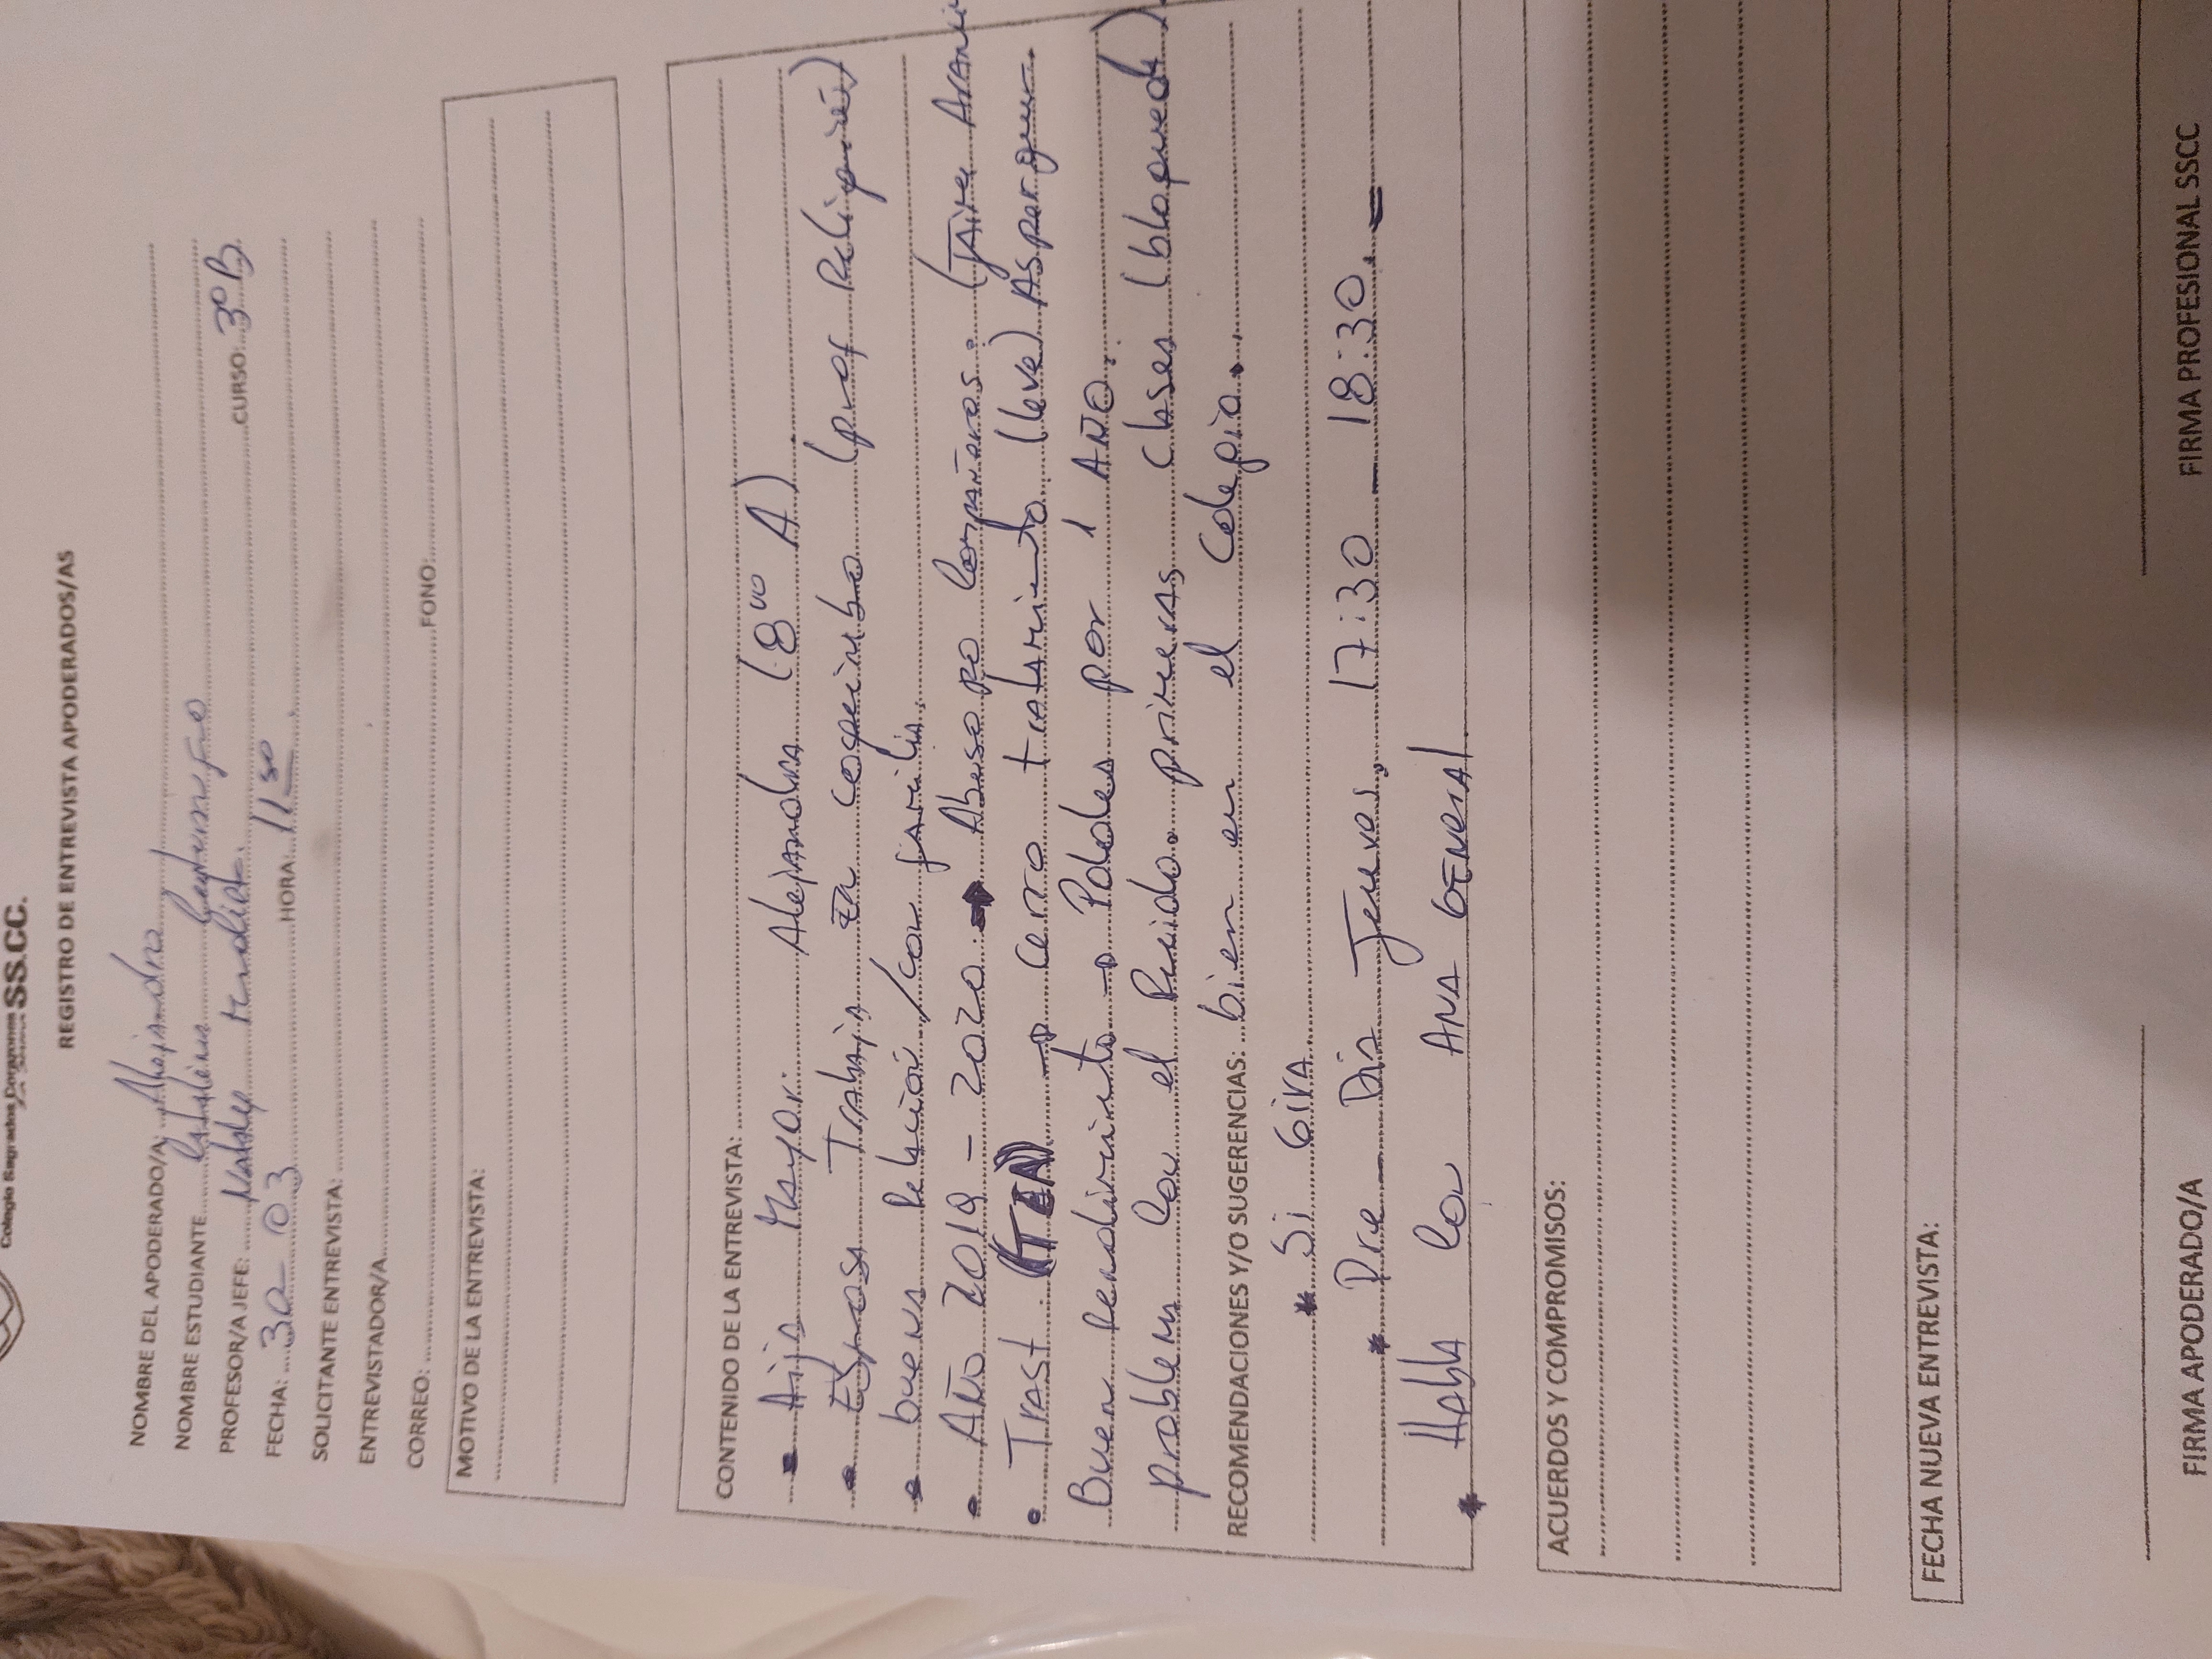 Colegio Sagrados Corazones SS.CC.
REGISTRO DE ENTREVISTA APODERADOS/AS
NOMBRE DEL APODERADO/A: Alejandra
NOMBRE ESTUDIANTE
PROFESOR/A JEFE: CURSO: 3º B
FECHA: 30-03 HORA: 11 30
SOLICITANTE ENTREVISTA:
ENTREVISTADOR/A
CORREO: FONO:
MOTIVO DE LA ENTREVISTA:
CONTENIDO DE LA ENTREVISTA:
• Hija Mayor: Alejandra (8vo A)
• Esposa Trabaja en coquimbo (prof Religión)
• buena Relación / con familia.
• Año 2019 - 2020 → Abuso po compañeros.
• Trast → cerro tratamiento (leve) Asperger
Buen Rendimiento → Padres por 1 AÑO.
problema con el Ruido. primeras clases (bloqueada)
RECOMENDACIONES Y/O SUGERENCIAS: bien en el Colegio.
* Si Gira
* Pre - Dia Jueves, 17:30 - 18:30. =
* Habla con ANA GENERAL
ACUERDOS Y COMPROMISOS:
FECHA NUEVA ENTREVISTA:
FIRMA APODERADO/A FIRMA PROFESIONAL SSCC